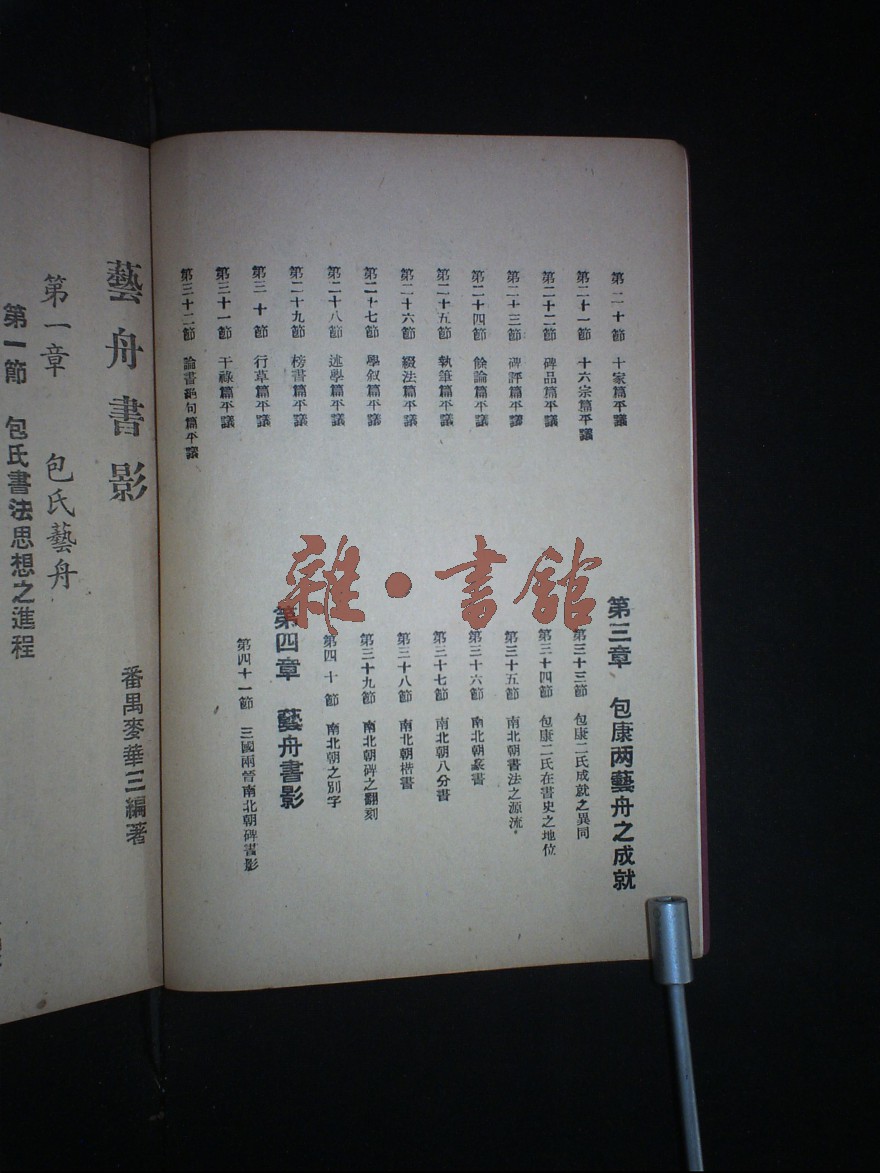 第二十節　十家篇平議
第二十一節　十六宗篇平議
第二十二節　碑品篇平議
第二十三節　碑評篇平議
第二十四節　餘論篇平議
第二十五節　執筆篇平議
第二十六節　綴法篇平議
第二十七節　學叙篇平議
第二十八節　述學篇平議
第二十九節　榜書篇平議
第三十節　行草篇平議
第三十一節　干祿篇平議
第三十二節　論書絕句篇平議
第三章　包康两藝舟之成就
第三十三節　包康二氏成就之異同
第三十四節　包康二氏在書史之地位
第三十五節　南北朝書法之源流。
第三十六節　南北朝篆書
第三十七節　南北朝八分書
第三十八節　南北朝楷書
第三十九節　南北朝碑之翻刻
第四十節　南北朝之別字
第四章　藝舟書影
第四十一節　三國兩晉南北朝碑書影
雜·書館
藝舟書影
番禺麥華三編著
第一章　包氏藝舟
第一節　包氏書法思想之進程